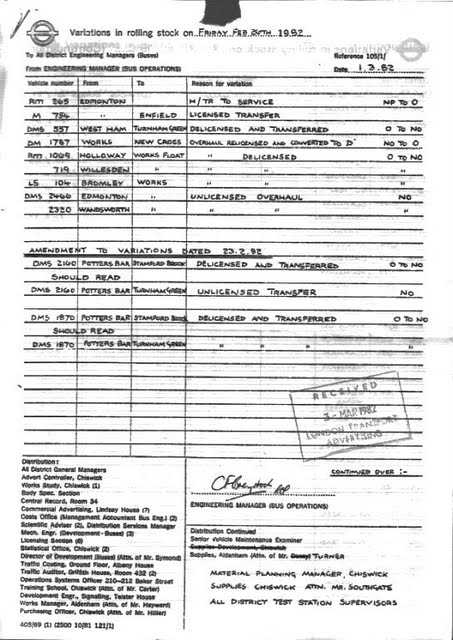 Variations in rolling stock on FRIDAY FEB 26TH 1982
To All District Engineering Managers (Buses)
Reference 109/1/
From ENGINEERING MANAGER (BUS OPERATIONS)
Date 1.3.82
Vehicle number From To Reason for variation
RM 265 EDMONTON H/TR TO SERVICE NP TO O
M 754 " ENFIELD LICENSED TRANSFER
DMS 557 WEST HAM TURNHAM GREEN DELICENSED AND TRANSFERRED O TO NO
DM 1787 WORKS NEW CROSS OVERHAUL RELICENSED AND CONVERTED TO D NO TO O
RM 1009 HOLLOWAY WORKS FLOAT " DELICENSED O TO NO
719 WILLESDEN " " " "
LS 104 BROMLEY WORKS " " "
DMS 2466 EDMONTON " UNLICENSED OVERHAUL NO
2320 WANDSWORTH " " " "
AMENDMENT TO VARIATIONS DATED 23.2.82
DMS 2160 POTTERS BAR STAMFORD BROOK DELICENSED AND TRANSFERRED O TO NO
SHOULD READ
DMS 2160 POTTERS BAR TURNHAM GREEN UNLICENSED TRANSFER NO
DMS 1870 POTTERS BAR STAMFORD BROOK DELICENSED AND TRANSFERRED O TO NO
SHOULD READ
DMS 1870 POTTERS BAR TURNHAM GREEN " " " "
RECEIVED
3 - MAR 1982
LONDON TRANSPORT
ADVERTISING
CONTINUED OVER :-
ENGINEERING MANAGER (BUS OPERATIONS)
Distribution:
All District General Managers
Advert Controller, Chiswick
Works Study, Chiswick (1)
Body Spec. Section
Central Record, Room 34
Commercial Advertising, Lindsey House (7)
Costs Office (Management Accountant Bus Eng.) (2)
Scientific Adviser (2), Distribution Services Manager
Mech. Engr. (Development - Buses) (3)
Licensing Section (6)
Statistical Office, Chiswick (2)
Director of Development (Buses) (Attn. of Mr. Symond)
Traffic Costing, Ground Floor, Albany House
Traffic Auditor, Griffith House, Room 432 (2)
Operations Systems Officer 210-212 Baker Street
Training School, Chiswick (Attn. of Mr. Carter)
Development Engr., Signalling, Telstar House
Works Manager, Aldenham (Attn. of Mr. Hayward)
Purchasing Officer, Chiswick (Attn. of Mr. Hiller)
Distribution Continued
Senior Vehicle Maintenance Examiner
Supplies Development, Chiswick
Supplies, Aldenham (Attn. of Mr. TURNER
MATERIAL PLANNING MANAGER, CHISWICK
SUPPLIES CHISWICK ATTN. MR. SOUTHGATE
ALL DISTRICT TEST STATION SUPERVISORS
405/69 (1) (2500 10/81 121/1)